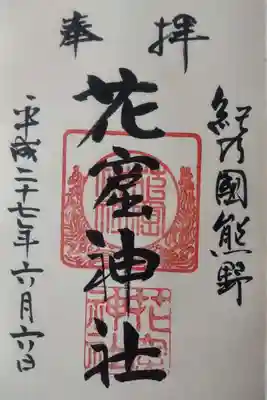 奉拝
紀乃國熊野
花窟神社
平成二十七年六月六日
花窟神社